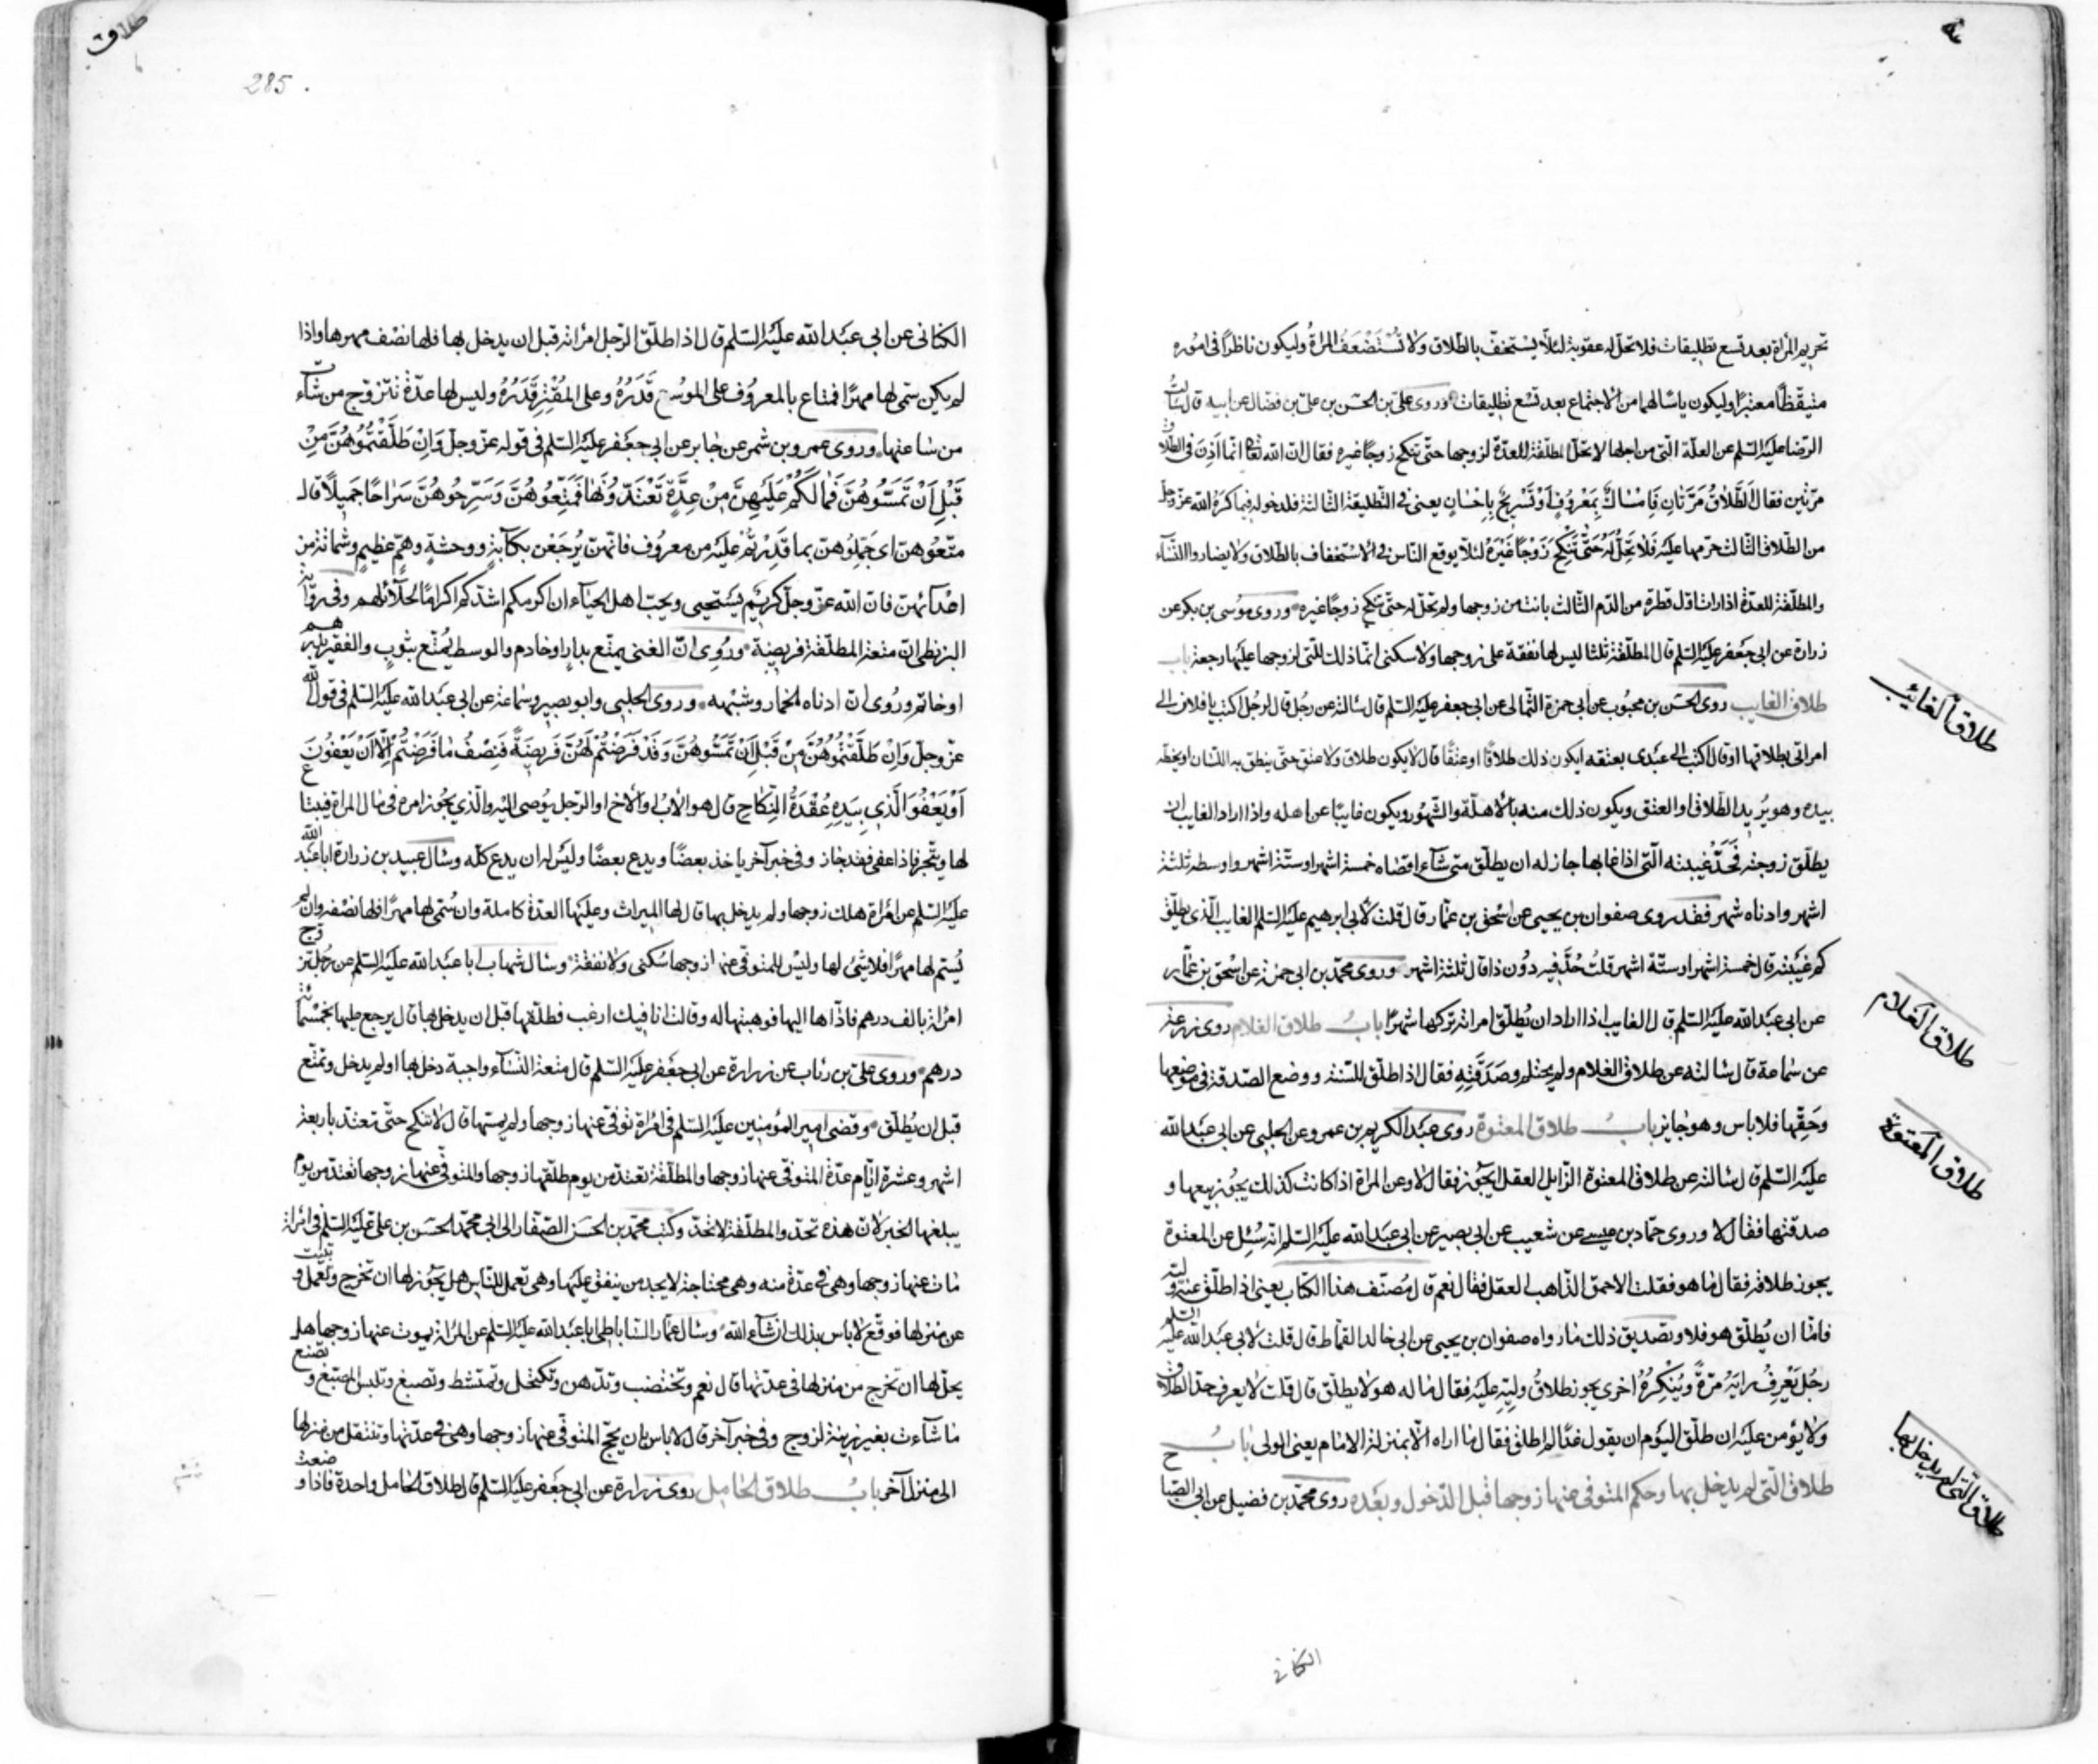 تحريم المرأة بعد تسع تطليقات فلا تحل له عقوبة لئلا يستخف بالطلاق ولا تُسْتَضْعَفُ المراةُ وليكون ناظرًا في اموره
متيقظًا معتبرًا وليكون ياسا لهما من الاجتماع بعد تسع تطليقات وروى على بن الحسن بن على بن فضال عن ابيه قال سالت
الرضا عليه السلم عن العلة التى من اجلها لا تحل المطلقة للعدة لزوجها حتى تنكح زوجًا غيره فقال ان الله تعالى انما اذن فى الطلاق
مرتين فقال اَلطَّلاقُ مَرَّتانِ فَاِمْسٰاكٌ بِمَعْرُوفٍ اَوْ تَسْرِيحٌ بِاِحْسٰانٍ يعنى فى التطليقة الثالثة فلدخوله فيما كره الله عز وجل
من الطلاق الثالث حرمها عليه فَلاٰ تَحِلُّ لَهُ حَتّٰى تَنْكِحَ زَوْجًا غَيْرَهُ لئلا يوقع الناس فى الاستخفاف بالطلاق ولا يضاروا النساء
والمطلقة للعدة اذا رات اول قطرة من الدم الثالث بانت من زوجها ولم تحل له حتى تنكح زوجًا غيره وروى موسى بن بكر عن
زرارة عن ابى جعفر عليه السلم قال المطلقة ثلثا ليس لها نفقة على زوجها ولا سكنى انما ذلك للتى لزوجها عليها رجعة باب
طلاق الغايب روى الحسن بن محبوب عن ابى حمزة الثمالى عن ابى جعفر عليه السلم قال سالته عن رجل قال لرجل اكتب يا فلان الى
امراتى بطلاقها او قال اكتب الى عبدى بعتقه ايكون ذلك طلاقًا او عتقًا قال لا يكون طلاق ولا عتق حتى ينطق به اللسان او يخطه
بيده وهو يريد الطلاق او العتق ويكون ذلك منه بالاهلة والشهور ويكون غايبًا عن اهله واذا اراد الغايب ان
يطلق زوجته فَحَدُّ غيبته التى اذا غابها جاز له ان يطلق متى شاء اقصاه خمسة اشهر او ستة اشهر واوسطه ثلثة
اشهر وادناه شهر فقد روى صفوان بن يحيى عن اسحق بن عمار قال قلت لابى ابرهيم عليه السلم الغايب الذى يطلق
كم غيبته قال خمسة اشهر او ستة اشهر قلت حَدٌّ فيه دون ذا قال ثلثة اشهر وروى محمد بن ابى حمزة عن اسحق بن عمار
عن ابى عبد الله عليه السلم قال الغايب اذا اراد ان يطلق امراته تركها شهرًا بابُ طلاق الغلام روى زرعة
عن سماعة قال سالته عن طلاق الغلام ولم يحتلم وصَدَقَتِهِ فقال اذا طلق للسنة ووضع الصدقة فى موضعها
وحَقِّها فلا باس وهو جايز بابُ طلاق المعتوه روى عبد الكريم بن عمرو عن الحلبى عن ابى عبد الله
عليه السلم قال سالته عن طلاق المعتوه الزايل العقل ايجوز فقال لا وعن المراة اذا كانت كذلك يجوز بيعها و
صدقتها فقال لا وروى حماد بن عيسى عن شعيب عن ابى بصير عن ابى عبد الله عليه السلم انه سُئِل عن المعتوه
يجوز طلاقه فقال ما هو فقلت الاحمق الذاهب العقل فقال نعم قال مصنف هذا الكتاب يعنى اذا طلق عنه وليه
فاما ان يطلق هو فلا وتصديق ذلك ما رواه صفوان بن يحيى عن ابى خالد القماط قال قلت لابى عبد الله عليه السلم
رجُل يَعْرِفُ رايَهُ مرّةً ويُنْكِرُهُ اخرى يجوز طلاقُ وليّه عليه فقال ما له هو لا يطلق قال قلت لا يعرف حد الطلاق
ولا يؤمن عليه ان طلق اليوم ان يقول غدًا لم اطلق فقال ما اراه الا بمنزلة الامام يعنى الولى بابُ
طلاق التى لم يدخل بها وحكم المتوفى عنها زوجها قبل الدخول وبعده روى محمد بن فضيل عن ابى الصباح
طلاق الغائب
طلاق الغلام
طلاق المعتوه
طلاق التى لم يدخل بها
الكنانى
طلاق
285
الكنانى عن ابى عبد الله عليه السلم قال اذا طلق الرجل امراته قبل ان يدخل بها فلها نصف مهرها واذا
لم يكن سمى لها مهرًا فمتاع بالمعروف على الموسع قَدَرُهُ وعلى المُقْتِرِ قَدَرُهُ وليس لها عدة تتزوج من شاء
من ساعتها وروى عمرو بن شمر عن جابر عن ابى جعفر عليه السلم فى قوله عز وجل وَاِنْ طَلَّقْتُمُوهُنَّ مِنْ
قَبْلِ اَنْ تَمَسُّوهُنَّ فَمٰا لَكُمْ عَلَيْهِنَّ مِنْ عِدَّةٍ تَعْتَدُّونَهٰا فَمَتِّعُوهُنَّ وَسَرِّحُوهُنَّ سَرٰاحًا جَمِيلاً قال
متّعُوهن اى جَمِّلُوهن بما قدرتم عليه من معروف فانهن يرجعن بكآبة ووحشة وهم عظيم وشماتة من
اعدائهن فان الله عز وجل كريم يستحيى ويحب اهل الحياء ان اكرمكم اشدكم اكرامًا لحلائلهم وفى رواية
البزنطى ان متعة المطلقة فريضة ورُوى ان الغنى يمتع بدار او خادم والوسط يُمتع بثوبٍ والفقير بدرهم
او خاتم ورُوى ان ادناه الخمار وشبهه وروى الحلبى وابو بصير وسماعة عن ابى عبد الله عليه السلم فى قول الله
عز وجل وَاِنْ طَلَّقْتُمُوهُنَّ مِنْ قَبْلِ اَنْ تَمَسُّوهُنَّ وَقَدْ فَرَضْتُمْ لَهُنَّ فَرِيضَةً فَنِصْفُ مٰا فَرَضْتُمْ اِلّٰا اَنْ يَعْفُونَ
اَوْ يَعْفُوَ الَّذِي بِيَدِهِ عُقْدَةُ النِّكٰاحِ قال هو الاب او الاخ او الرجل يوصى اليه والذى يجوز امره فى مال المراة فيبتاع
لها ويتجر فاذا عفى فقد جاز وفى خبر آخر ياخذ بعضًا ويدع بعضًا وليس له ان يدع كله وسال عبيد بن زرارة ابا عبد الله
عليه السلم عن امراة هلك زوجها ولم يدخل بها قال لها الميراث وعليها العدة كاملة وان سمى لها مهرًا فلها نصفه وان لم
يُسم لها مهرًا فلا شئ لها وليس للمتوفى عنها زوجها سكنى ولا نفقة وسال شهاب ابا عبد الله عليه السلم عن رجل تزوج
امراة بالف درهم فاداها اليها فوهبتها له وقالت انا فيك ارغب فطلقها قبل ان يدخل بها قال يرجع عليها بخمسمائة
درهم وروى على بن رئاب عن زرارة عن ابى جعفر عليه السلم قال متعة النساء واجبة دخل بها او لم يدخل وتمتع
قبل ان يُطلق وقضى امير المؤمنين عليه السلم فى امراة توفى عنها زوجها ولم يمسها قال لا تنكح حتى تعتد باربعة
اشهر وعشرة ايام عدة المتوفى عنها زوجها والمطلقة تعتد من يوم طلقها زوجها والمتوفى عنها زوجها تعتد من يوم
يبلغها الخبر لان هذه تحد والمطلقة لا تحد وكتب محمد بن الحسن الصفار الى ابى محمد الحسن بن على عليه السلم فى امراة
مات عنها زوجها وهى فى عدة منه وهى محتاجة لا يجد من ينفق عليها وهى تعمل للناس هل يجوز لها ان تخرج وتعمل وتبيت
عن منزلها فوقع لا باس بذلك ان شاء الله وسال عمار الساباطى ابا عبد الله عليه السلم عن المراة يموت عنها زوجها هل
يحل لها ان تخرج من منزلها فى عدتها قال نعم وتختضب وتدهن وتكتحل وتمتشط وتصبغ وتلبس المصبغ وتصنع
ما شاءت بغير زينة لزوج وفى خبر آخر قال لا باس بان يحج المتوفى عنها زوجها وهى فى عدتها وتنتقل من منزل
الى منزل آخر بابُ طلاق الحامل روى زرارة عن ابى جعفر عليه السلم قال طلاق الحامل واحدة فاذا وضعت